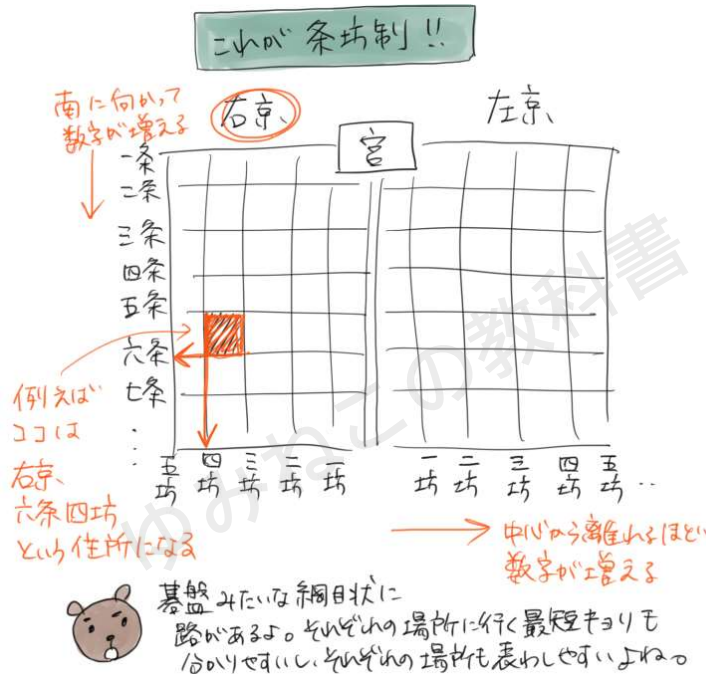 これが 条坊制!!
南に向かって
数字が増える
右京、
左京、
宮
一条
二条
三条
四条
五条
六条
七条
⋮
例えば
ココは
右京、
六条四坊
という住所になる
五坊 四坊 三坊 二坊 一坊
一坊 二坊 三坊 四坊 五坊 ‥
中心から離れるほど
数字が増える
碁盤みたいな網目状に
路があるよ。それぞれの場所に行く最短キョリも
分かりやすいし、それぞれの場所も表わしやすいよね。
ゆみねこの教科書